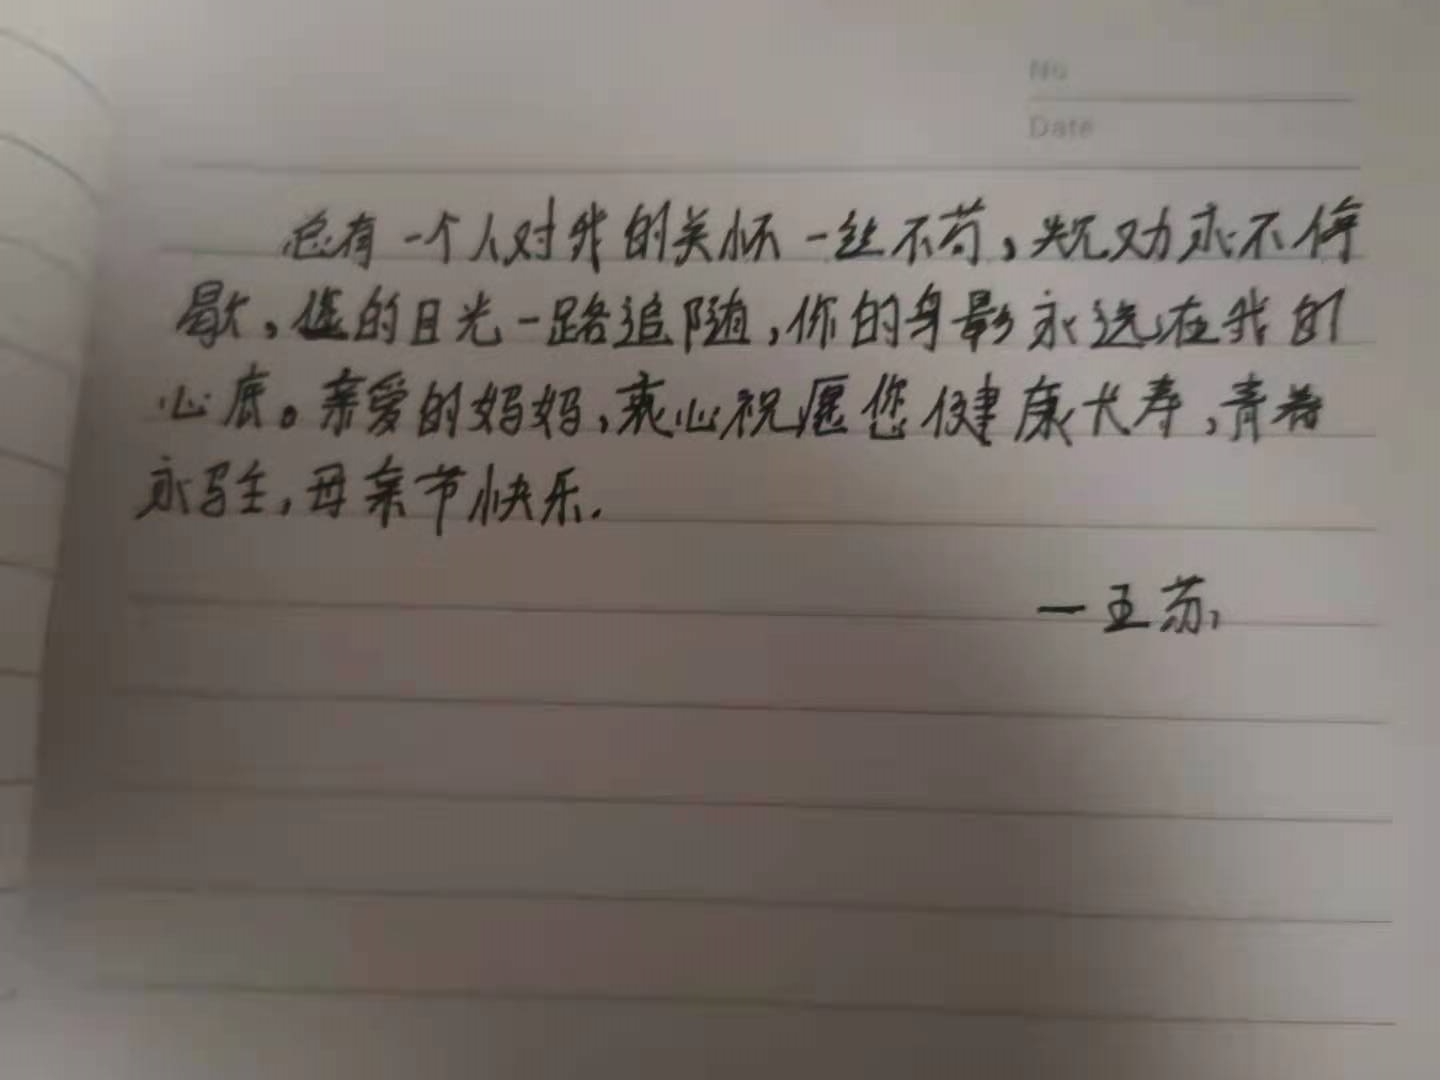 No
Date
总有一个人对我的关怀一丝不苟,规劝永不停
歇,您的目光一路追随,你的身影永远在我的
心底。亲爱的妈妈,衷心祝愿您健康长寿,青春
永驻,母亲节快乐.
—王苏